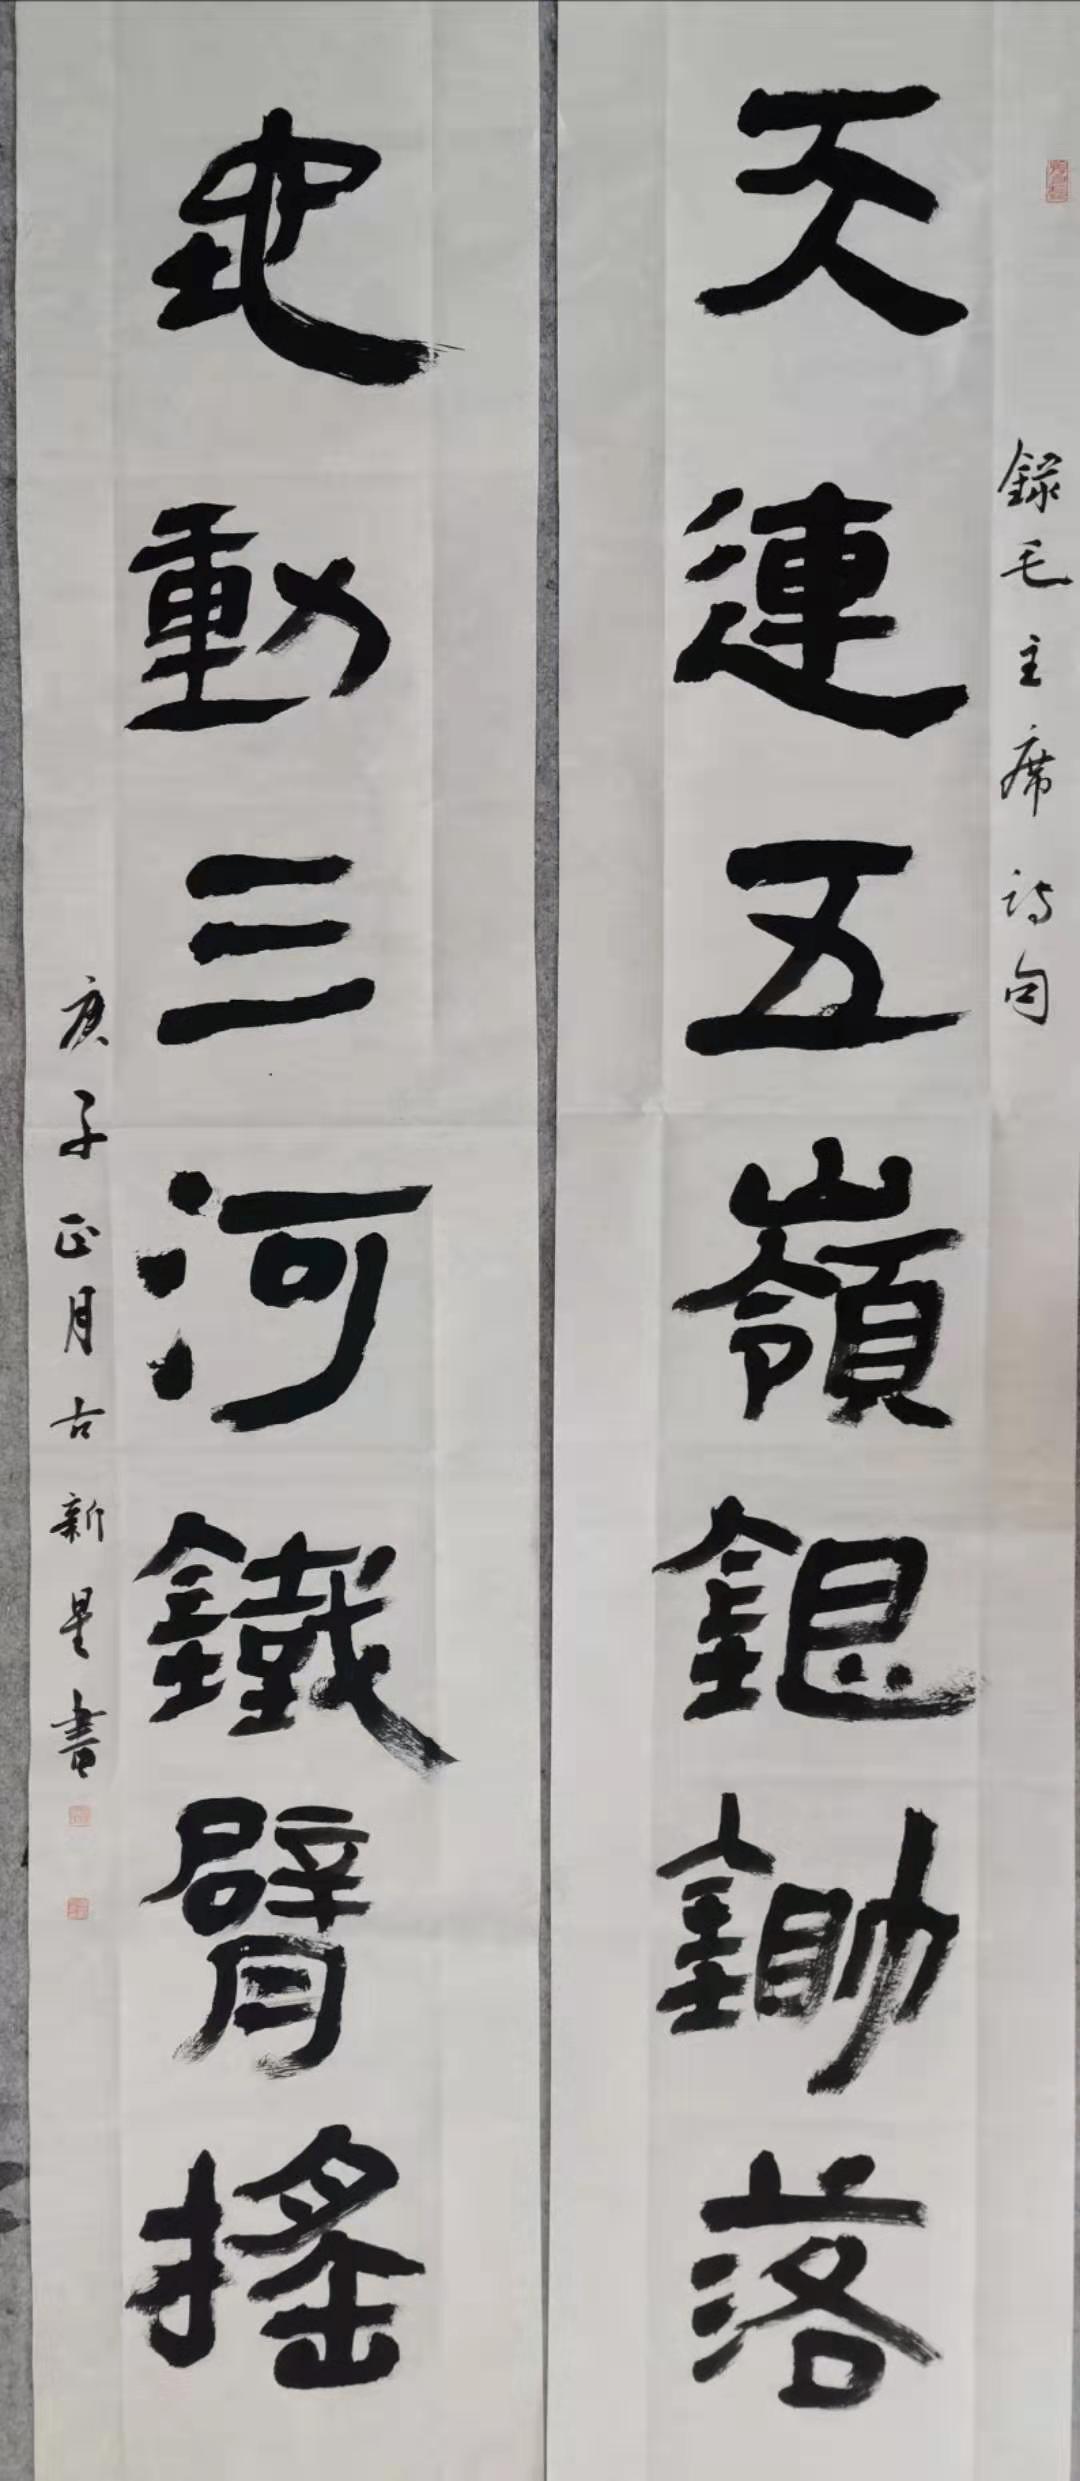 錄毛主席诗句
天連五嶺銀鋤落
地動三河鐵臂搖
庚子正月古新星書